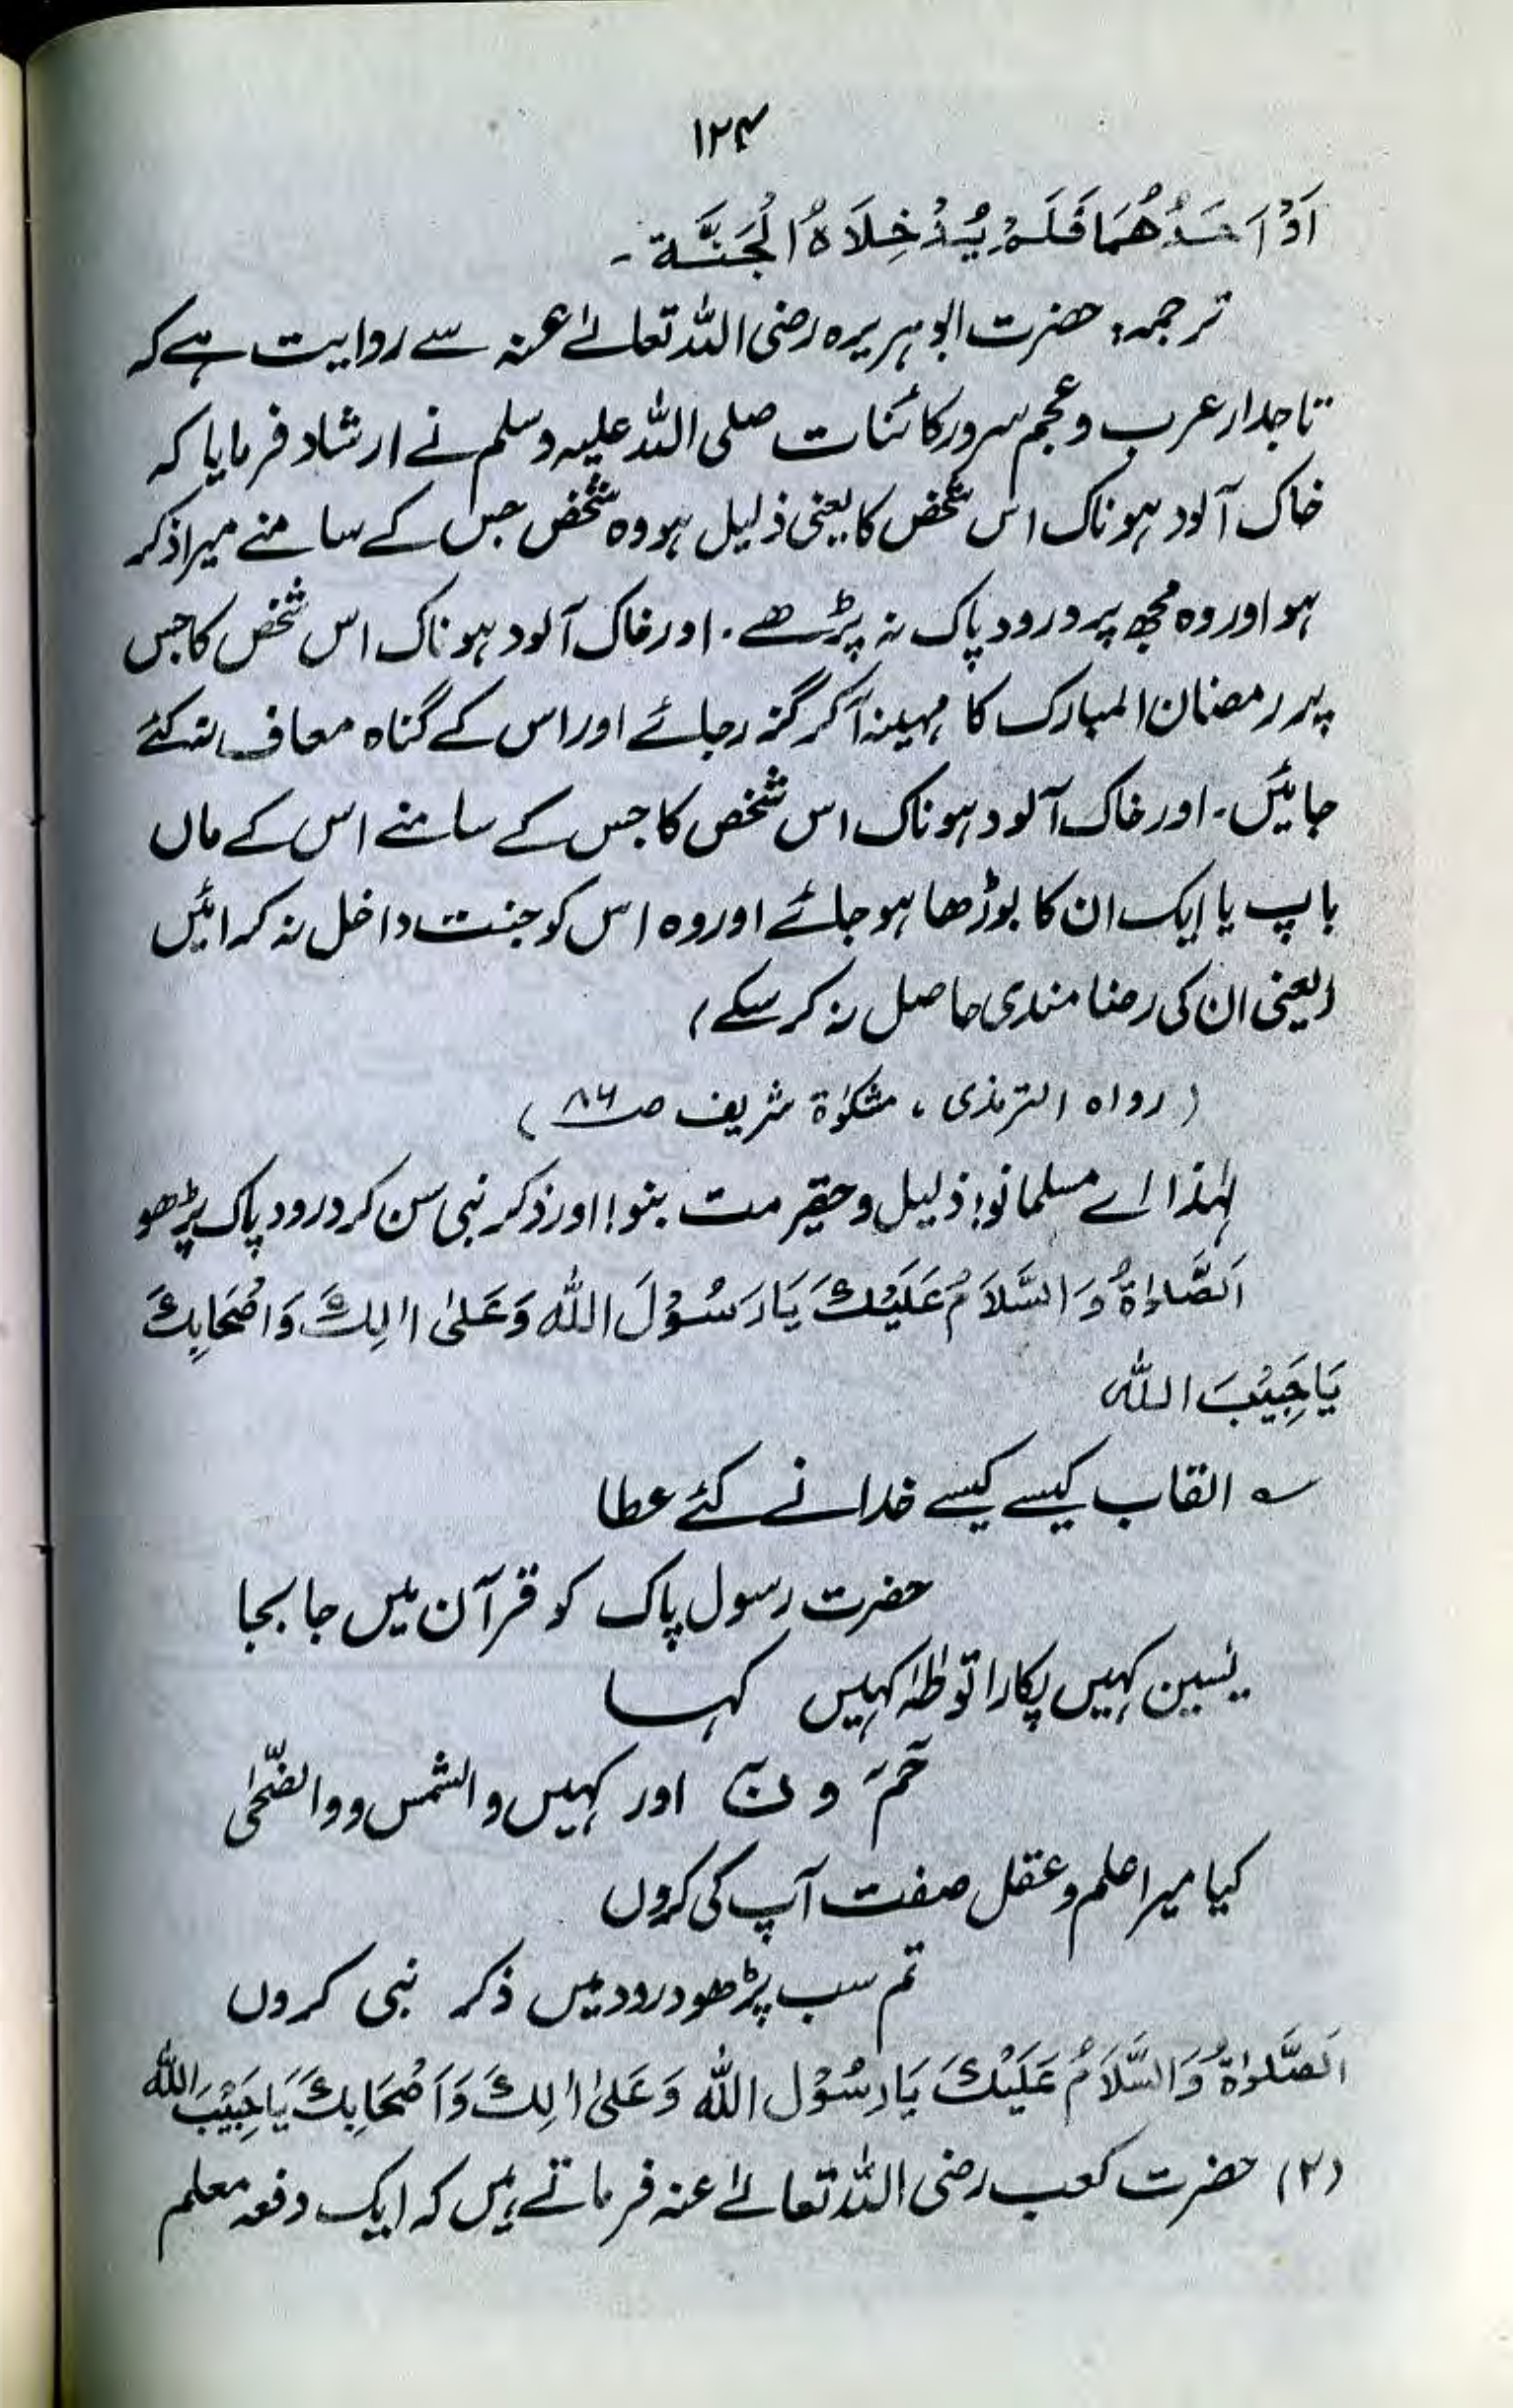 ۱۲۴
اَوْ اَحَدُهُمَا فَلَمْ يُدْخِلَاهُ الْجَنَّة۔
ترجمہ: حضرت ابوہریرہ رضی اللہ تعالےٰ عنہ سے روایت ہے کہ
تاجدار عرب و عجم سرور کائنات صلی اللہ علیہ وسلم نے ارشاد فرمایا کہ
خاک آلود ہو ناک اس شخص کا یعنی ذلیل ہو وہ شخص جس کے سامنے میرا ذکر
ہو اور وہ مجھ پر درود پاک نہ پڑھے۔ اور خاک آلود ہو ناک اس شخص کا جس
پر رمضان المبارک کا مہینہ آکر گزر جائے اور اس کے گناہ معاف نہ کئے
جائیں۔ اور خاک آلود ہو ناک اس شخص کا جس کے سامنے اس کے ماں
باپ یا ایک ان کا بوڑھا ہو جائے اور وہ اس کو جنت داخل نہ کرائیں
(یعنی ان کی رضا مندی حاصل نہ کر سکے)
(رواہ الترمذی ، مشکوٰۃ شریف صـ ۸۶)
لہٰذا اے مسلمانو! ذلیل و حقیر مت بنو! اور ذکر نبی سن کر درود پاک پڑھو
اَلصَّلوٰةُ وَالسَّلَامُ عَلَيْكَ يَا رَسُوْلَ اللّٰه وَعَلىٰ اٰلِكَ وَاَصْحَابِكَ
يَا حَبِيْبَ اللّٰه
؎ القاب کیسے کیسے خدا نے کئے عطا
حضرت رسول پاک کو قرآن میں جا بجا
یٰسین کہیں پکارا تو طٰہٰ کہیں کہا
حٰمٓ و نٓ اور کہیں والشمس و والضّحٰی
کیا میرا علم و عقل صفت آپ کی کروں
تم سب پڑھو درود میں ذکر نبی کروں
اَلصَّلوٰةُ وَالسَّلَامُ عَلَيْكَ يَا رَسُوْل اللّٰه وَعَلىٰ اٰلِكَ وَاَصْحَابِكَ يَا حَبِيْبَ اللّٰه
(۲) حضرت کعب رضی اللہ تعالےٰ عنہ فرماتے ہیں کہ ایک دفعہ معلم